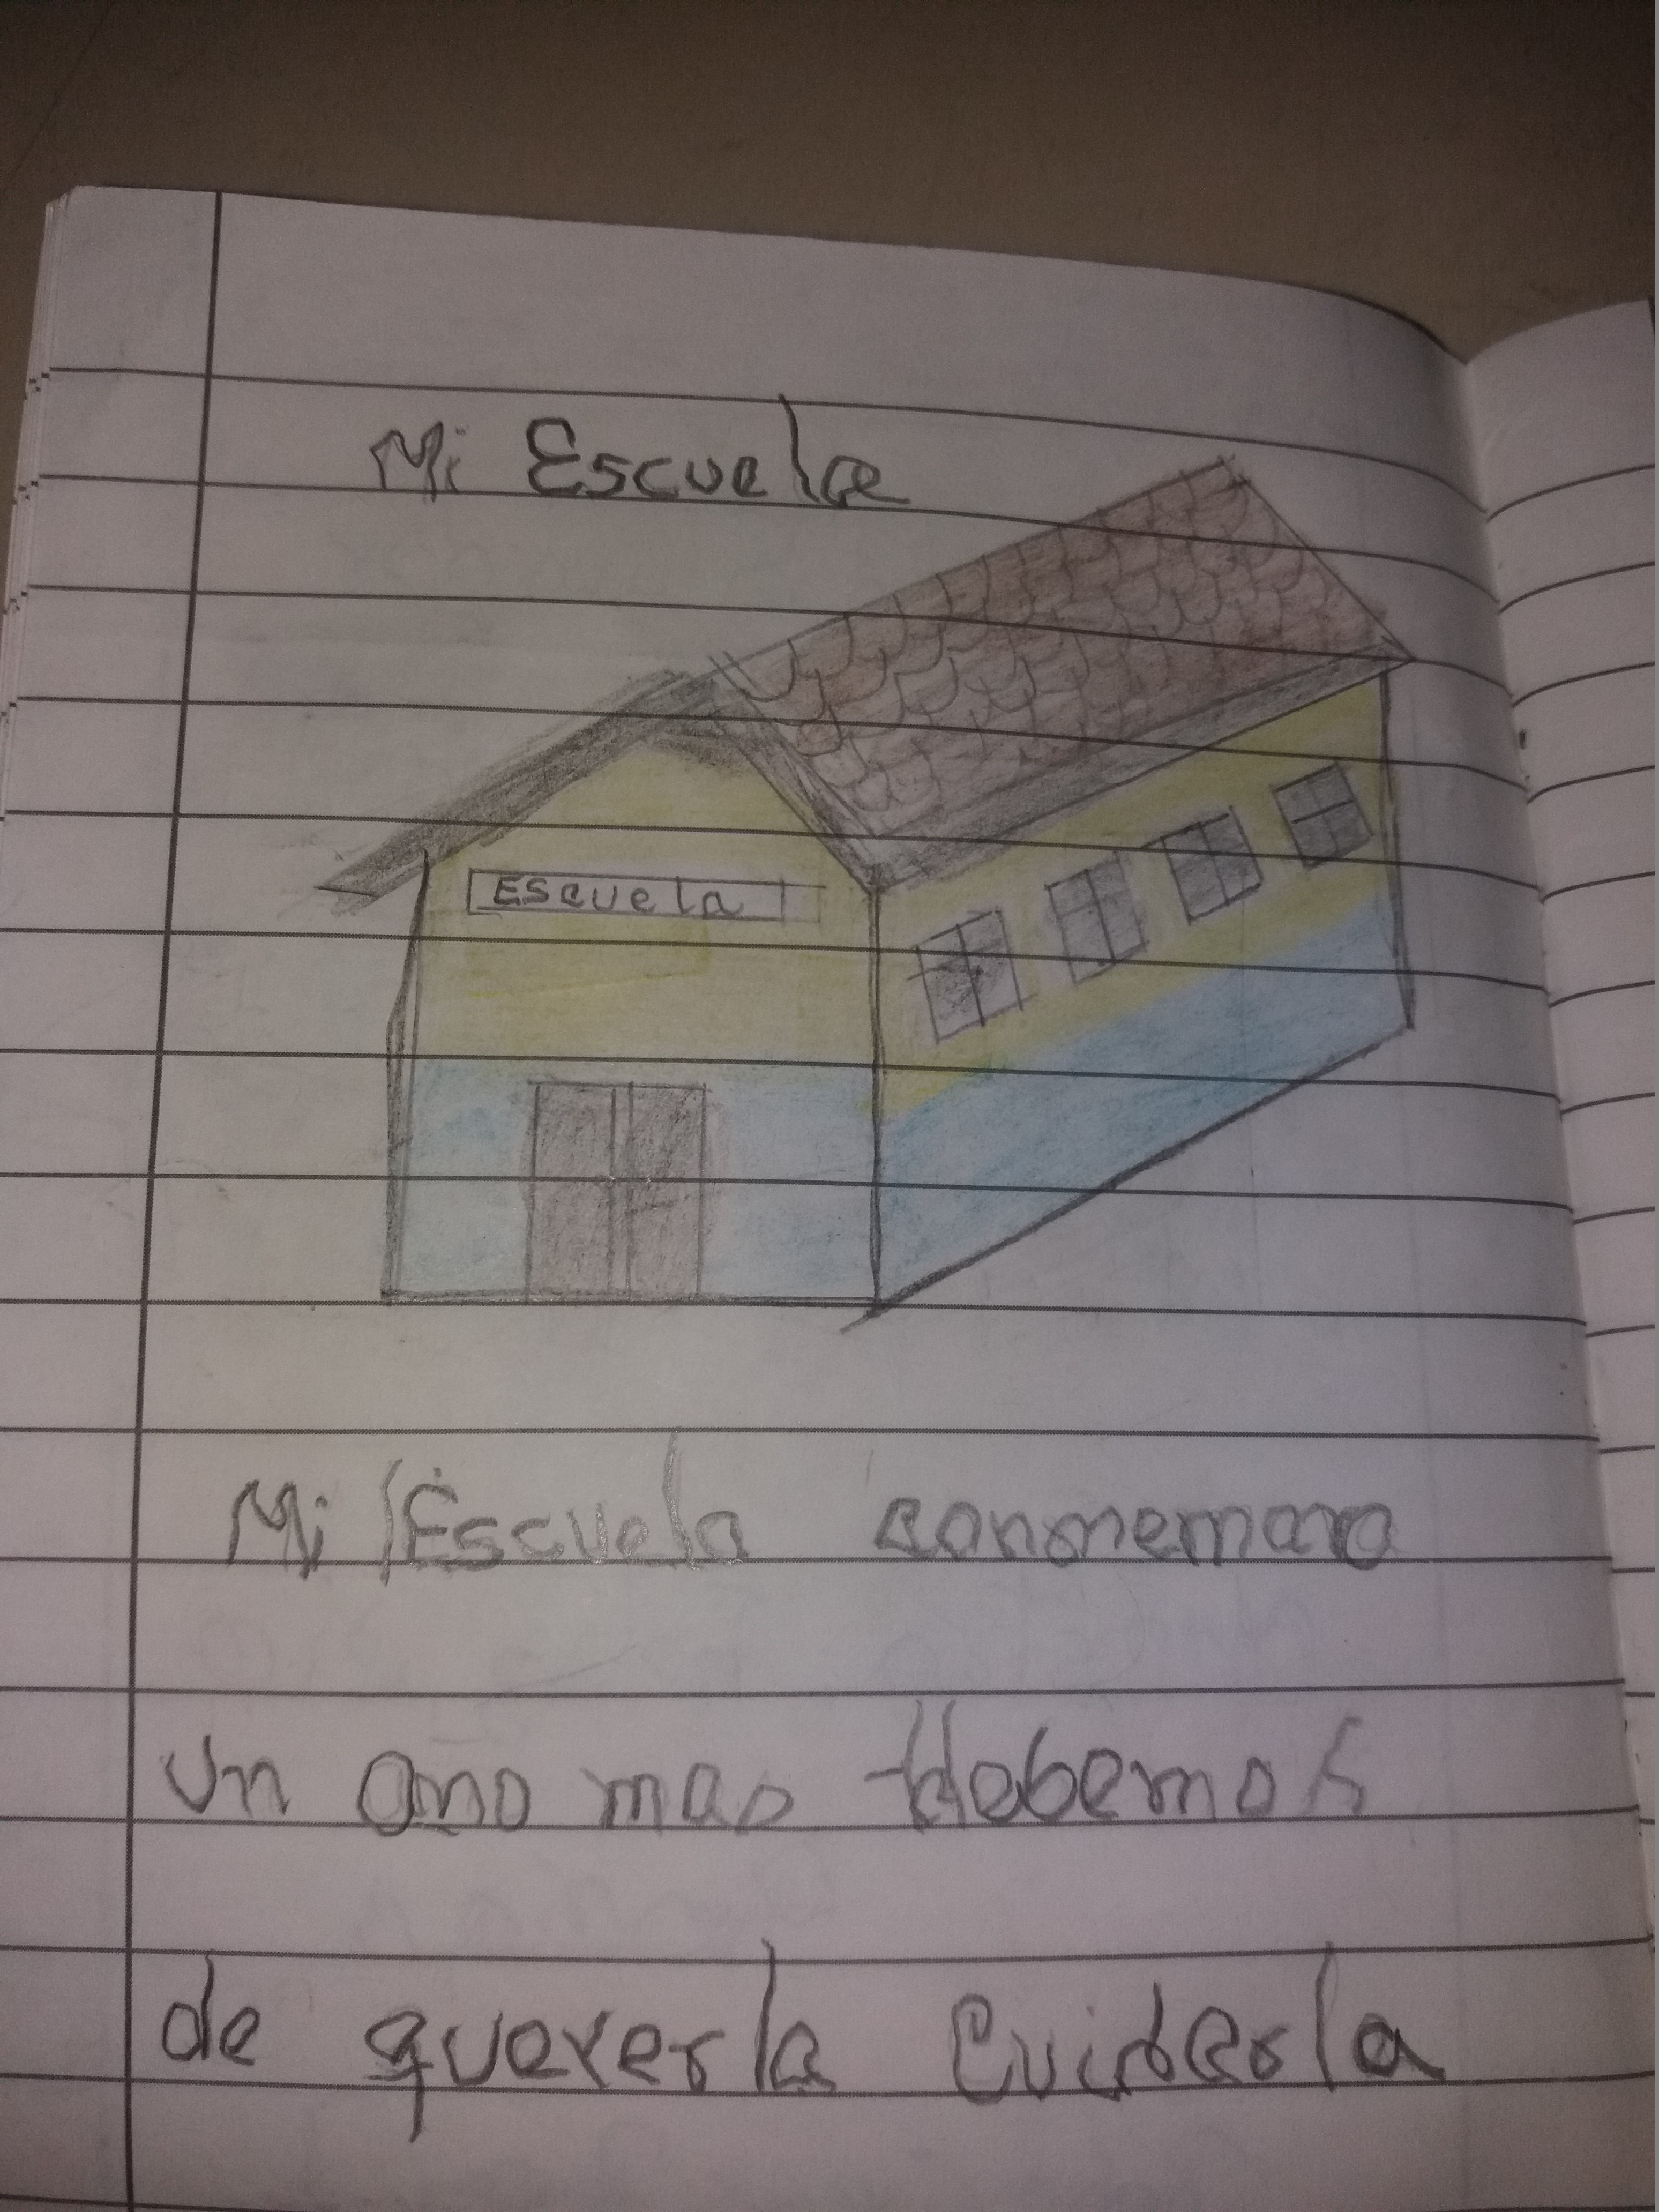 Mi Escuela
Escuela
Mi Escuela conmemaro
un ano mas debemos
de quererla Cuiderla